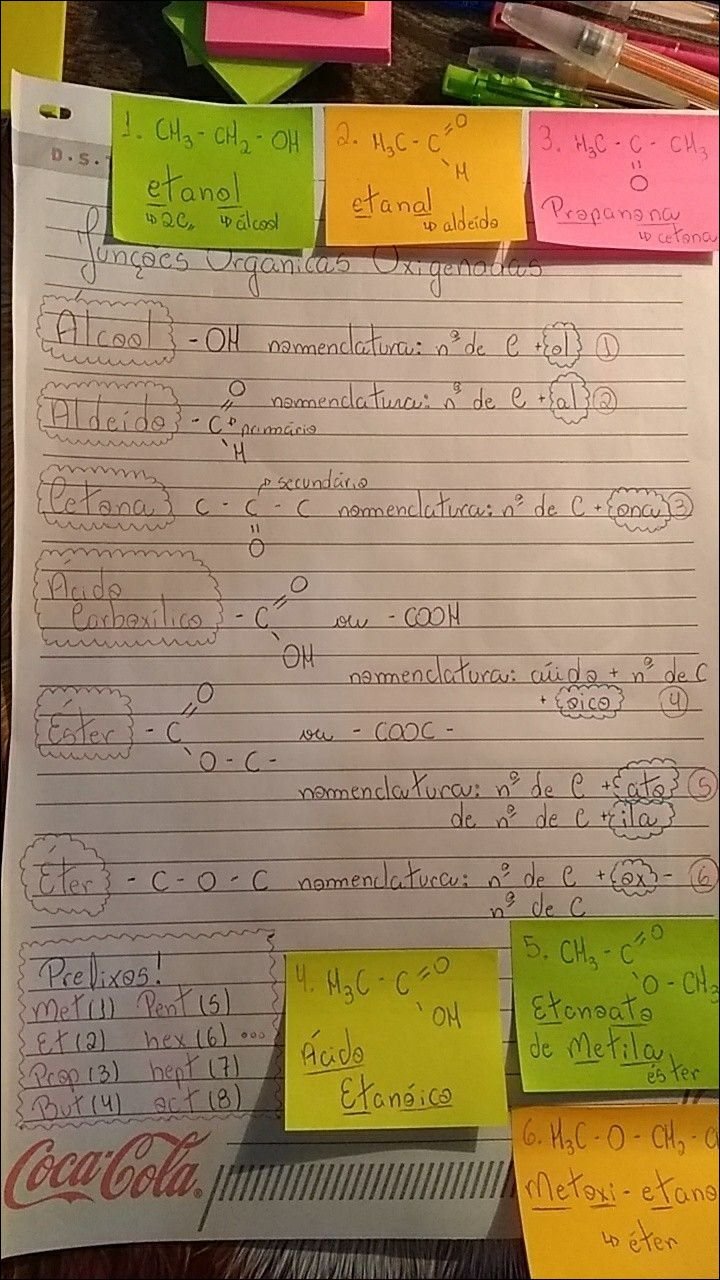 1. CH3 - CH2 - OH
etanol
↳ 2C ↳ álcool
2. H3C - C = O
H
etanal
↳ aldeído
3. H3C - C - CH3
O
Propanona
↳ cetona
D.S.
Funções Orgânicas Oxigenadas
Álcool - OH nomenclatura: nº de C + ol 1
Aldeído - C = O nomenclatura: nº de C + al 2
↱ primário
H
↱ secundário
Cetona C - C - C nomenclatura: nº de C + ona 3
O
Ácido
Carboxílico - C = O ou - COOH
OH
nomenclatura: ácido + nº de C
+ oico 4
Éster - C = O ou - COOC -
O - C -
nomenclatura: nº de C + ato 5
de nº de C + ila
Éter - C - O - C nomenclatura: nº de C + ox - 6
nº de C
Prefixos!
Met (1) Pent (5)
Et (2) hex (6) ...
Prop (3) hept (7)
But (4) oct (8)
4. H3C - C = O
OH
Ácido
Etanóico
5. CH3 - C = O
O - CH3
Etanoato
de Metila
éster
6. H3C - O - CH2 - C
Metoxi - etano
↳ éter
Coca-Cola